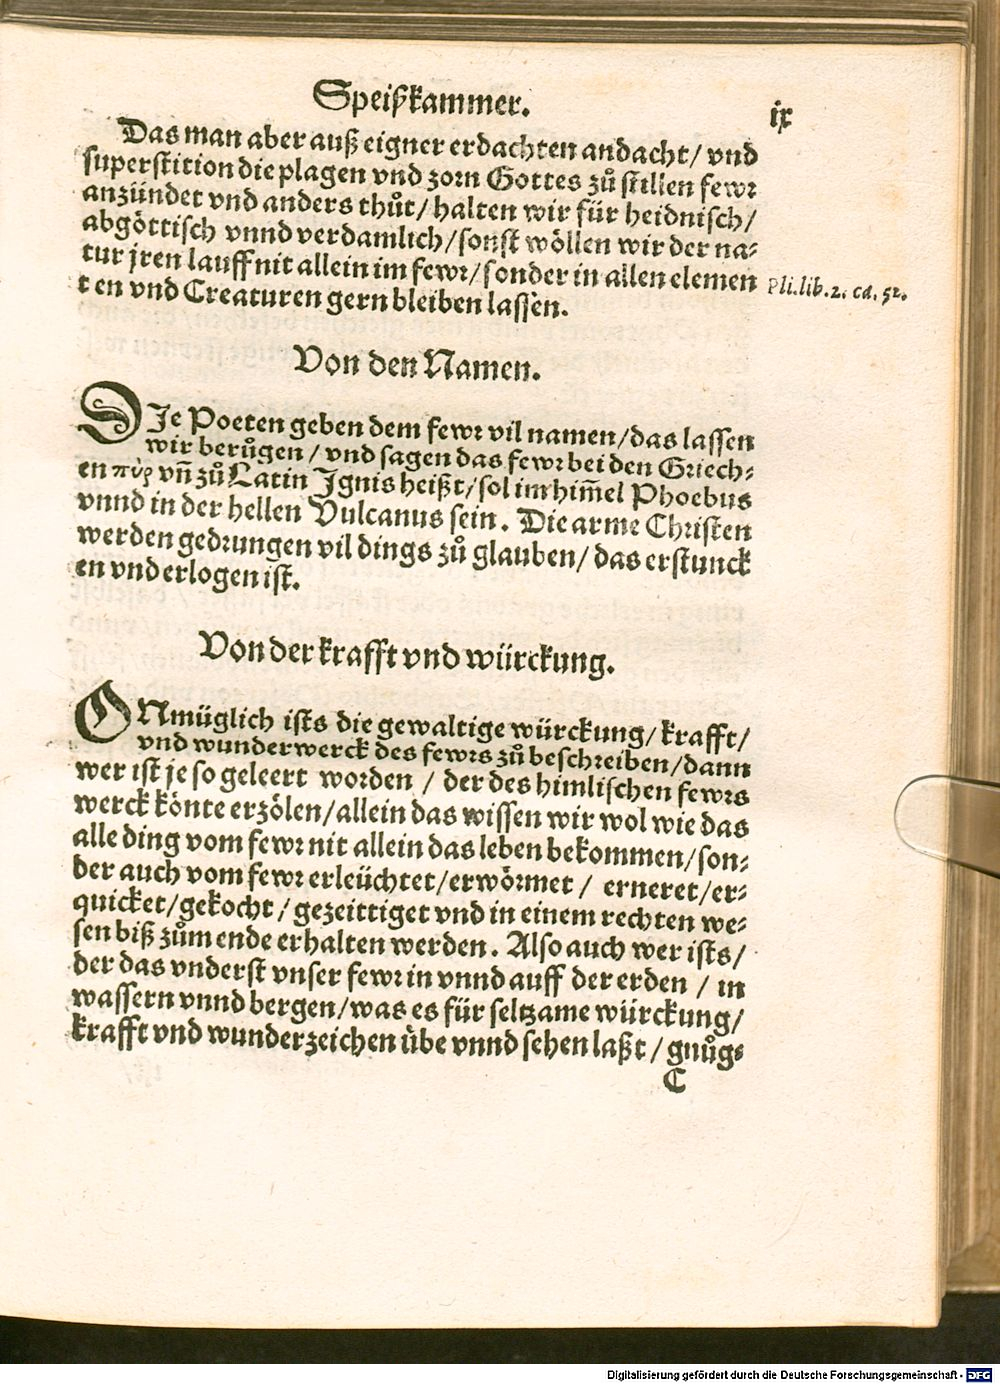 Speißkammer. ix
Das man aber auß eigner erdachten andacht/ vnd
superstition die plagen vnd zorn Gottes zů stillen fewr
anzündet vnd anders thůt/ halten wir für heidnisch/
abgöttisch vnnd verdamlich/ sonst wöllen wir der na-
tur jren lauff nit allein im fewr/ sonder in allen elemen
ten vnd Creaturen gern bleiben lassen.
Pli. lib. 2. ca. 51.
Von den Namen.
DJe Poeten geben dem fewr vil namen/ das lassen
wir berůgen/ vnd sagen das fewr bei den Griech-
en πῦρ vñ zů Latin Ignis heißt/ sol im him̃el Phoebus
vnnd in der hellen Vulcanus sein. Die arme Christen
werden gedrungen vil dings zů glauben/ das erstunck
en vnd erlogen ist.
Von der krafft vnd würckung.
ONmüglich ists die gewaltige würckung/ krafft/
vnd wunderwerck des fewrs zů beschreiben/ dann
wer ist je so geleert worden/ der des himlischen fewrs
werck könte erzölen/ allein das wissen wir wol wie das
alle ding vom fewr nit allein das leben bekommen/ son-
der auch vom fewr erleüchtet/ erwörmet/ erneret/ er-
quicket/ gekocht/ gezeittiget vnd in einem rechten we-
sen biß zům ende erhalten werden. Also auch wer ists/
der das vnderst vnser fewr in vnnd auff der erden/ in
wassern vnnd bergen/ was es für seltzame würckung/
krafft vnd wunderzeichen übe vnnd sehen laßt/ gnůg-
C
Digitalisierung gefördert durch die Deutsche Forschungsgemeinschaft - DFG